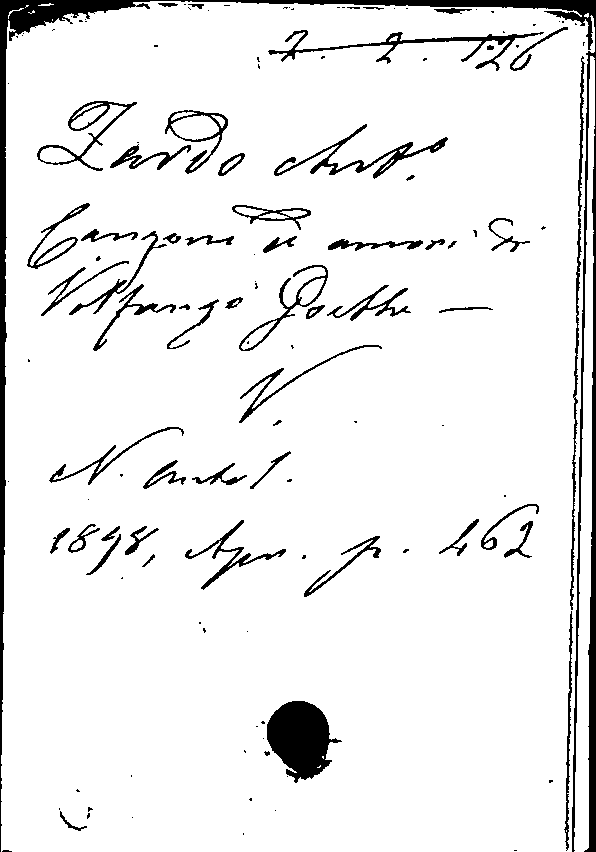 2. 2. 126
Zardo Ant.o
Canzoni di amori di
Volfango Goethe —
V.
N. Antol.
1898, Apr. p. 462